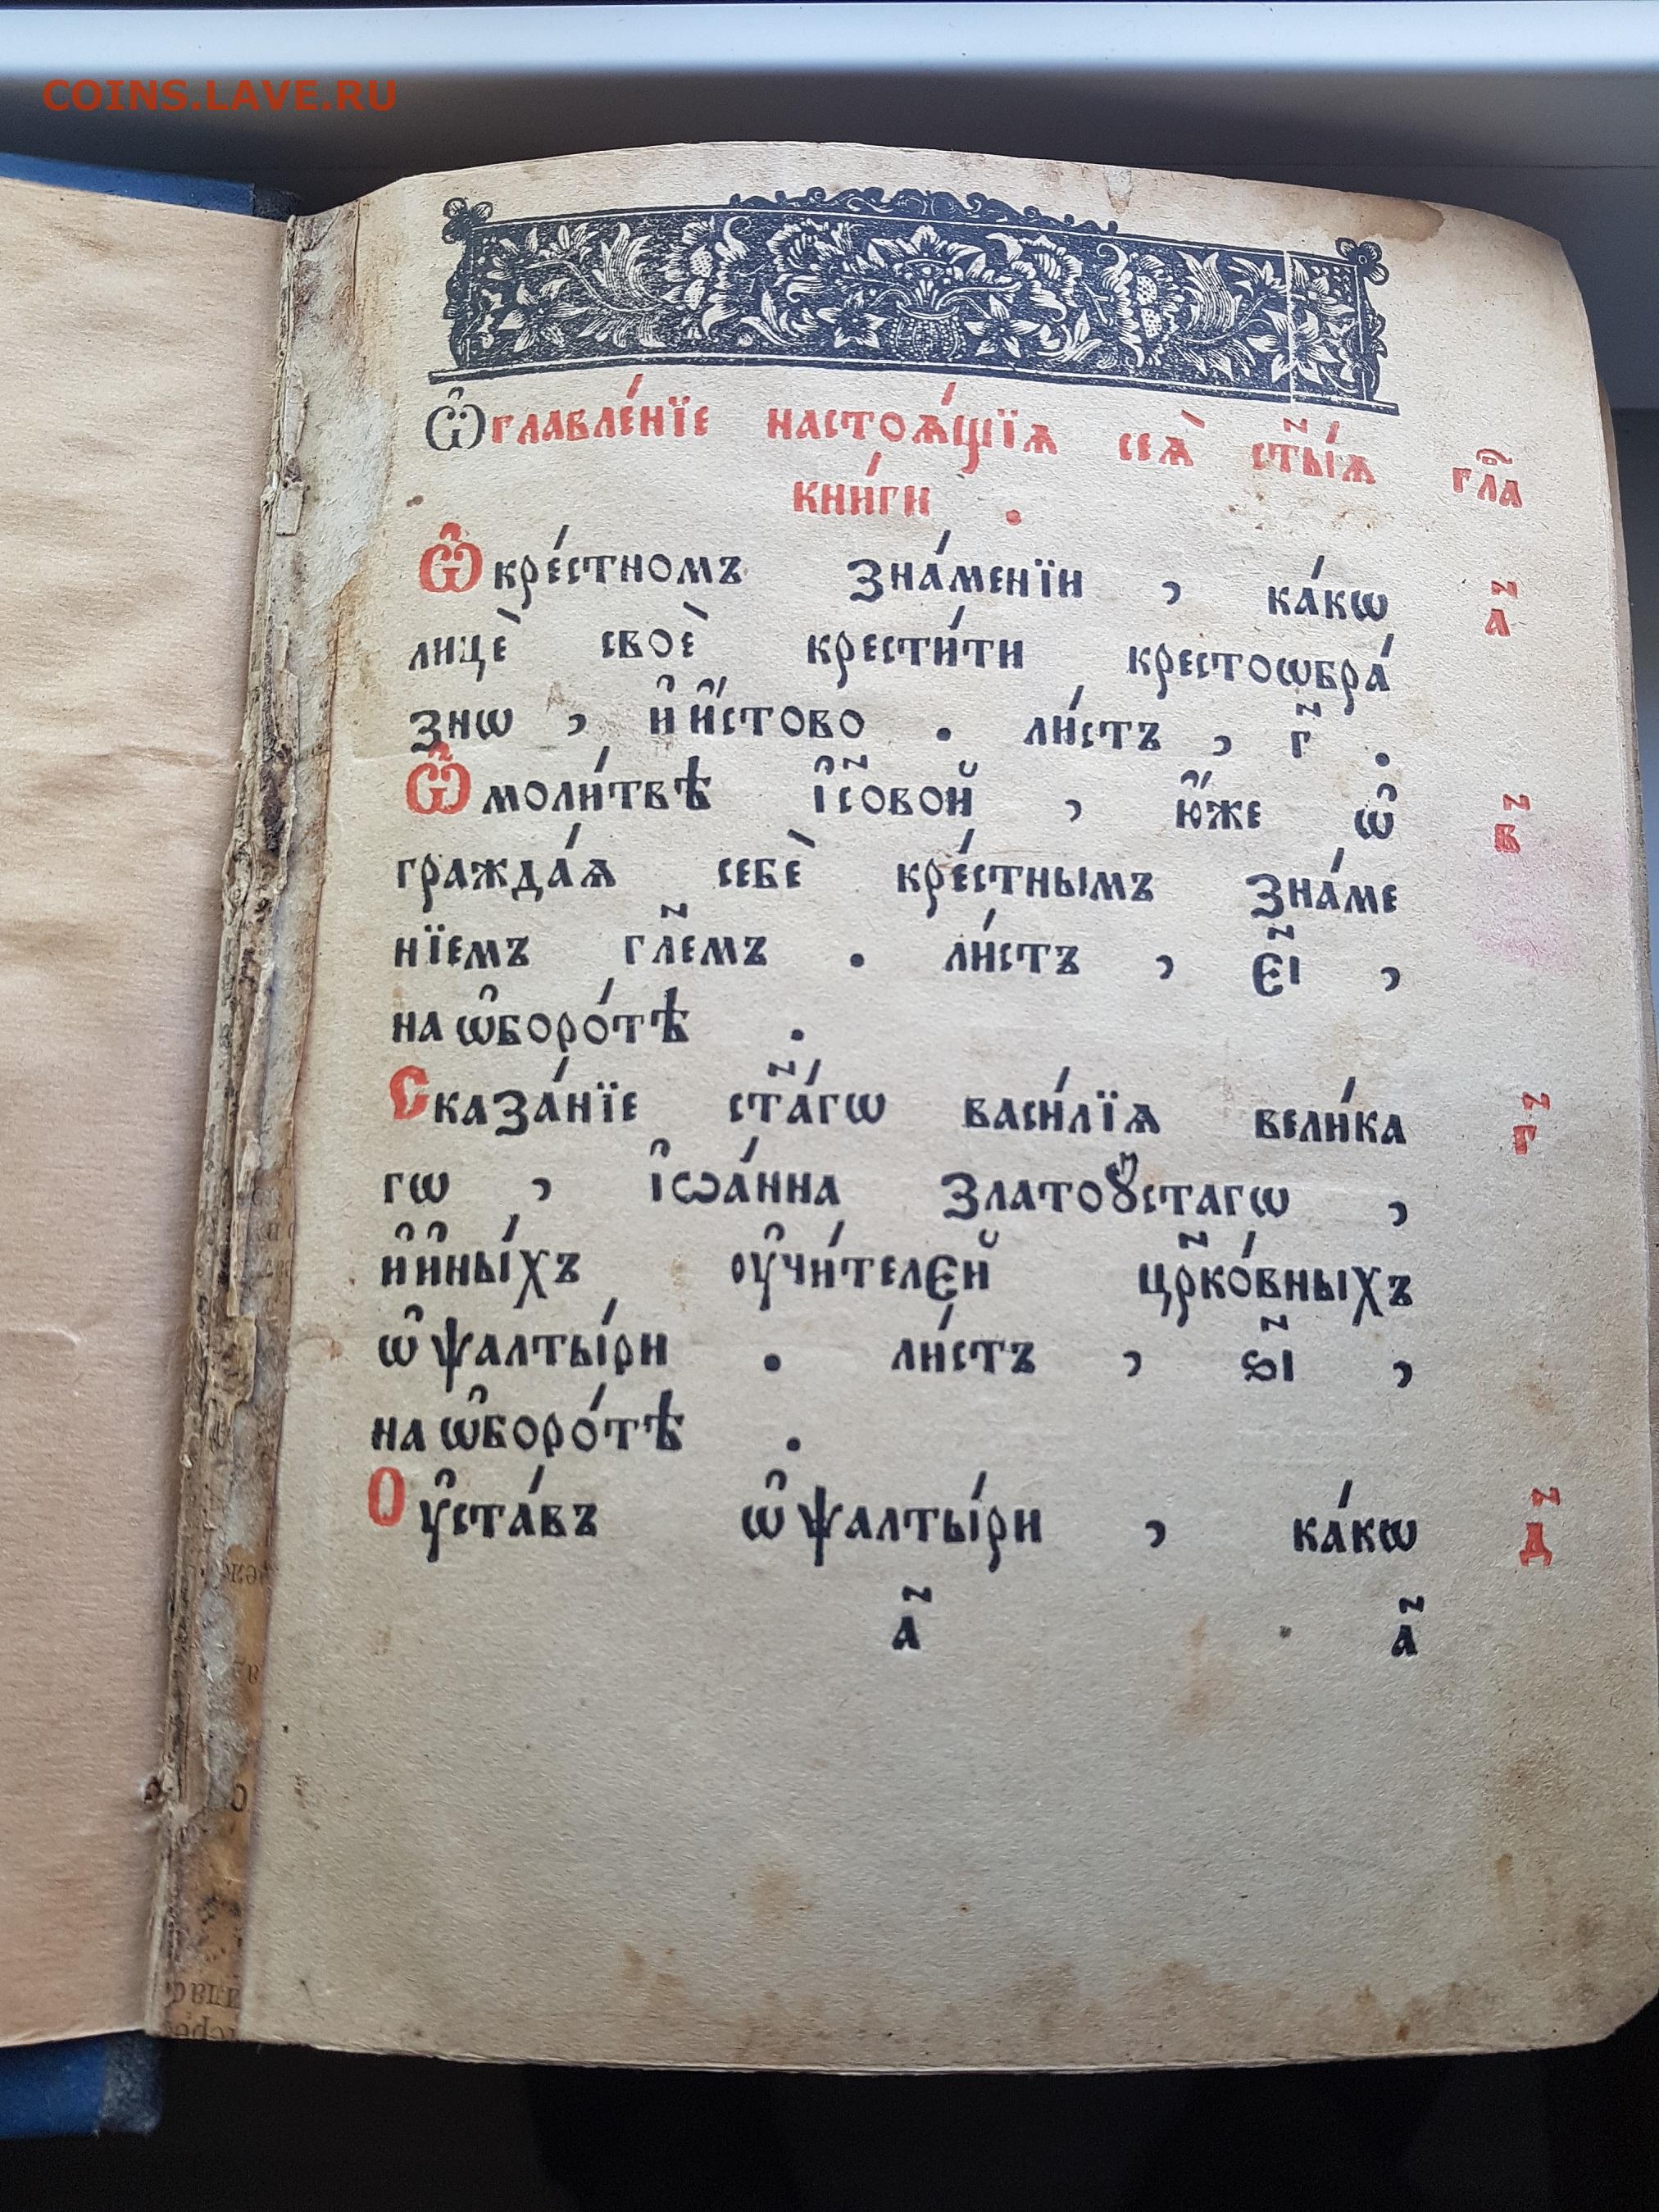 COINS.LAVE.RU
Ѡ҆главле́нїе настоѧ́щїѧ сеѧ̀ ст҃ы́ѧ гла̑
кни́ги .
Ѡ҆ кре́стномъ зна́менїи , ка́кѡ а҃
лицѐ своѐ крести́ти крестоѡбра́
знѡ , и҆ и҆́стово . ли́стъ , г҃ .
Ѡ҆ моли́твѣ і҆с҃овой , ю҆́же ѡ҆ в҃
гражда́ѧ себѐ кре́стнымъ зна́ме
нїемъ гл҃емъ . ли́стъ , є҃і ,
на ѡ҆боро́тѣ .
Сказа́нїе ст҃а́гѡ васи́лїѧ вели́ка г҃
гѡ , і҆ѡа́нна златоꙋ́стагѡ ,
и҆ и҆ны́хъ оу҆чи́телєй цр҃ко́вныхъ
ѡ҆ ѱалты́ри . ли́стъ , ѕ҃і ,
на ѡ҆боро́тѣ .
Оу҆ста́въ ѡ҆ ѱалты́ри , ка́кѡ д҃
а҃ а҃